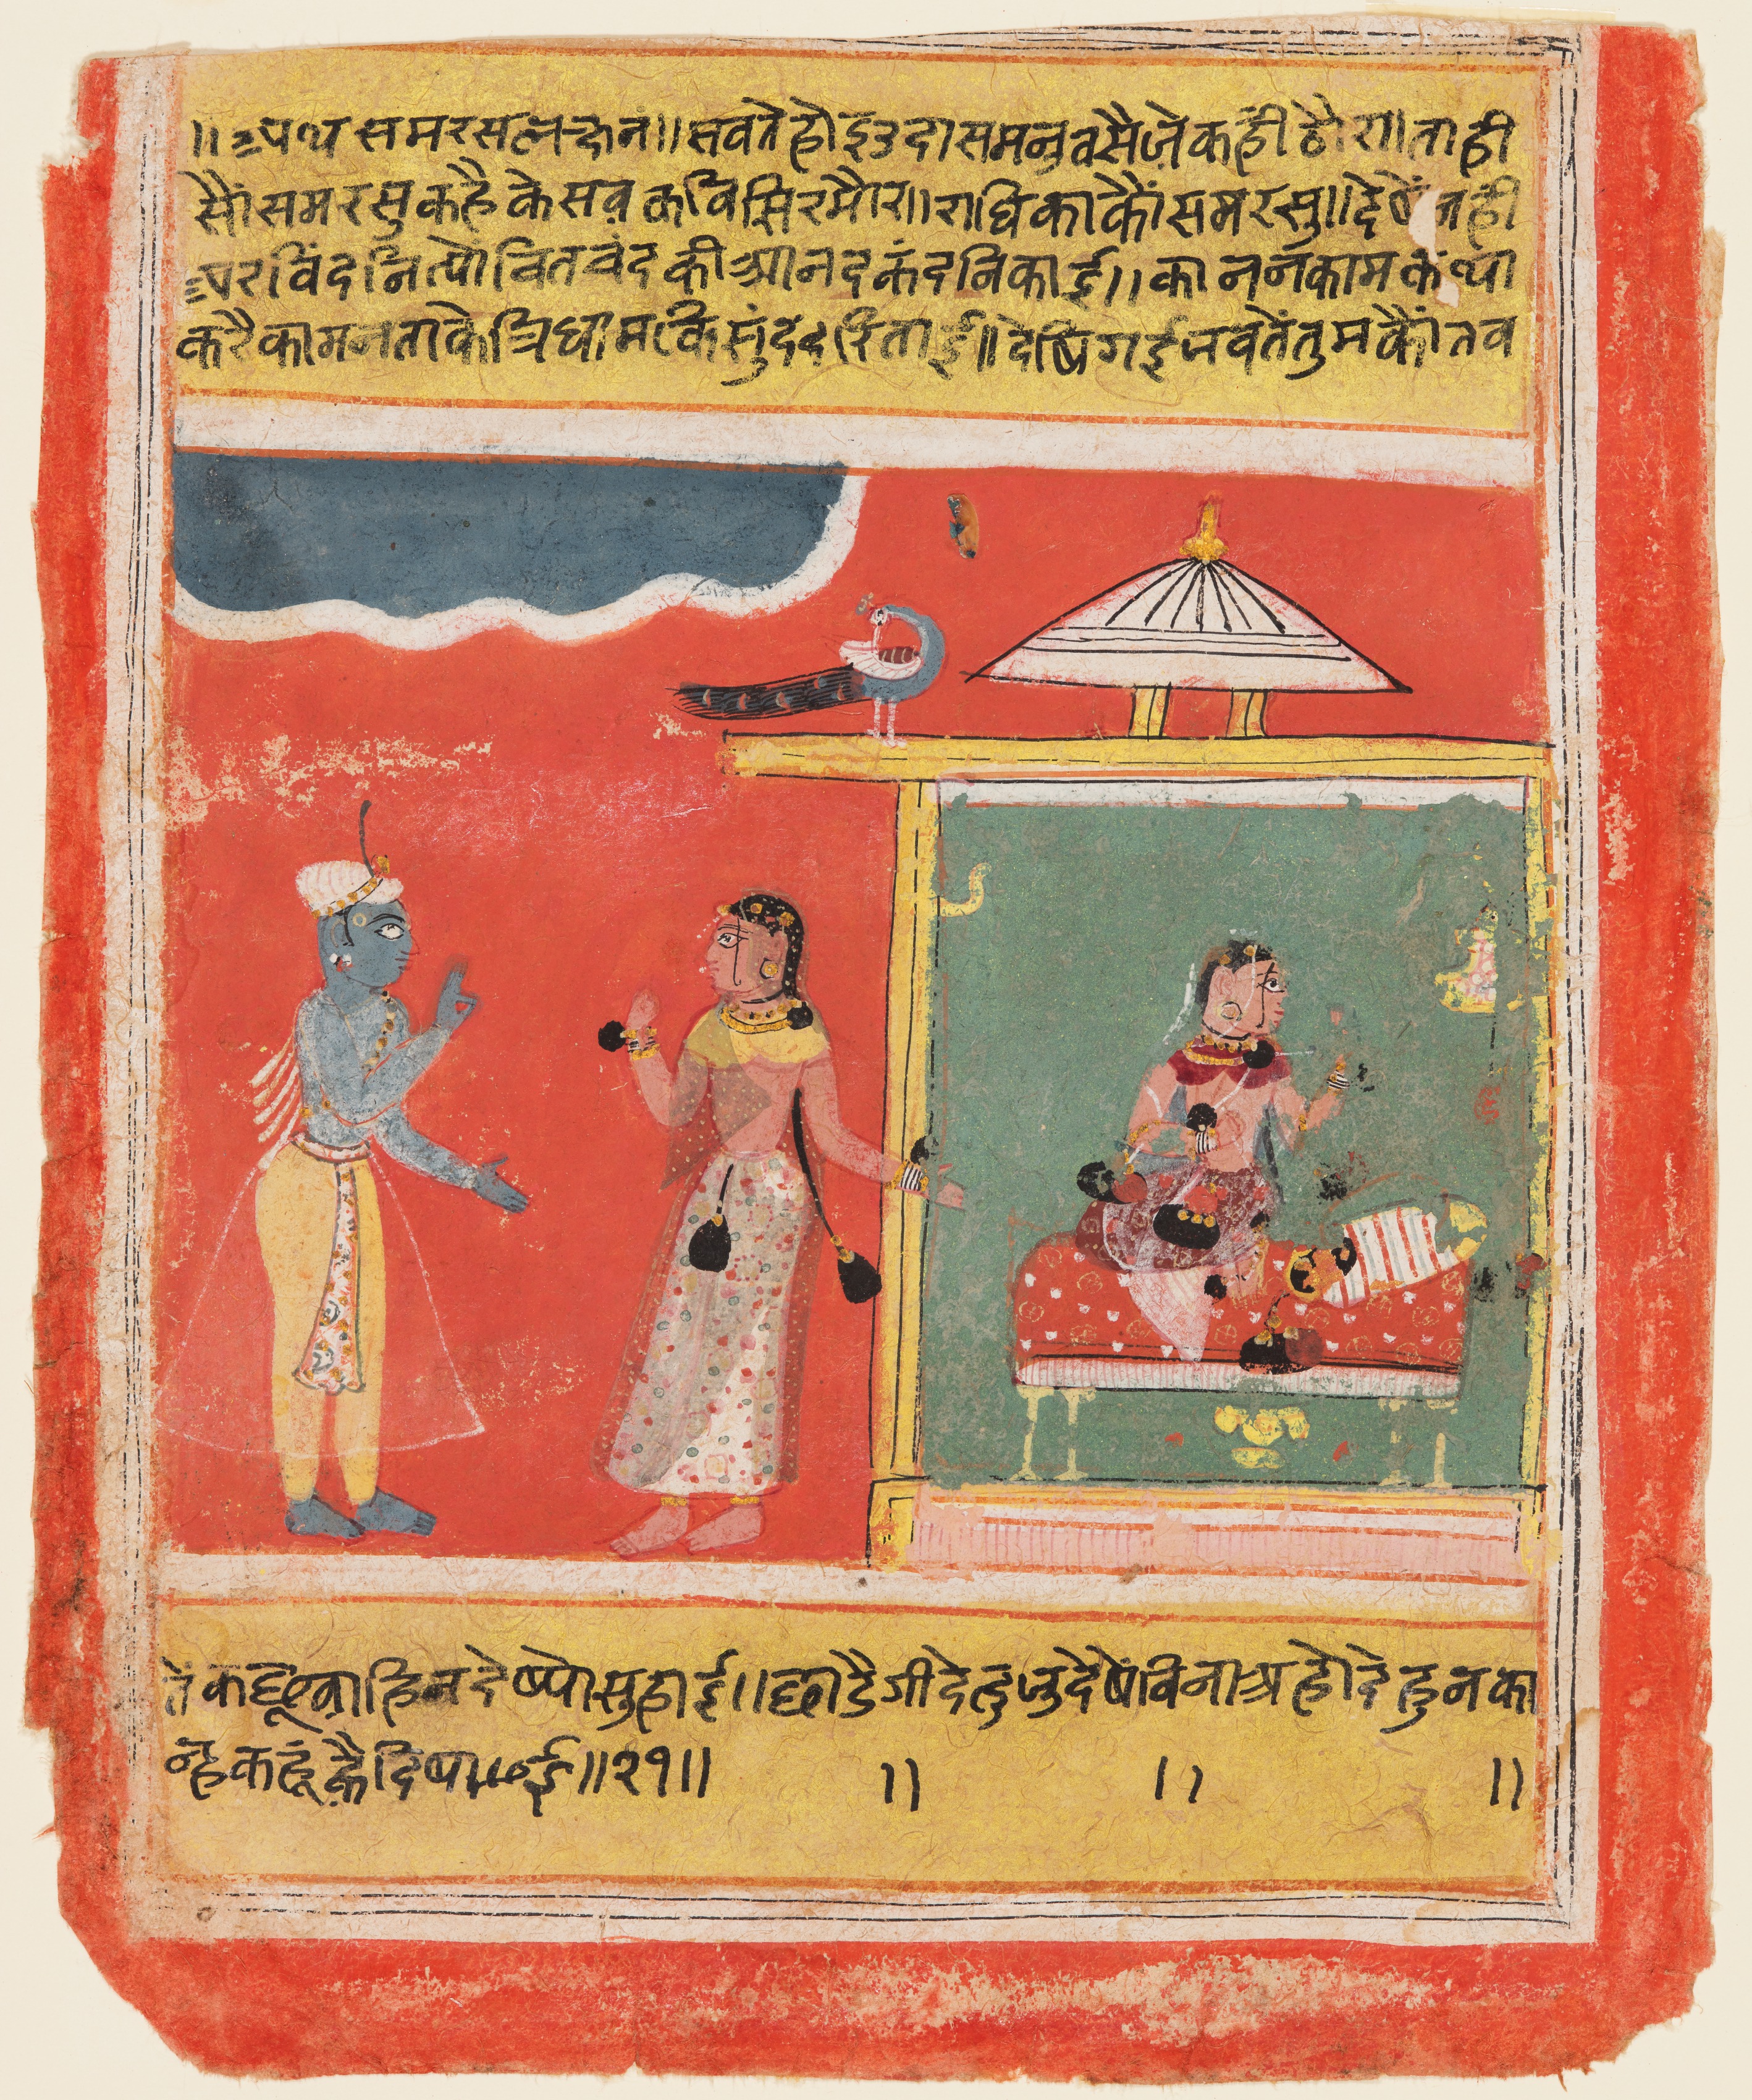 ॥अथ समरस लछन॥सब तें होइ उदास मनु बसै जे कहीं ठौर॥ताही
सौं समरसु कहै केसव कवि सिरमौर॥राधिका कौं समरसु॥देषें नहीं
अरविंदनि त्यौ चित चंद की आनद कंद निकाई॥कानन काम कथा
करै काम न ताके त्रिधाम कि सुंदरिताई॥देषि गई जब तें तुम कौं तब
तें कछू ताहि न देष्यो सुहाई॥छाडैगी देहु जु देषें बिना अहो देहु न का
न्ह कहूं ह्वै दिषाई॥२१॥ ॥ ॥ ॥